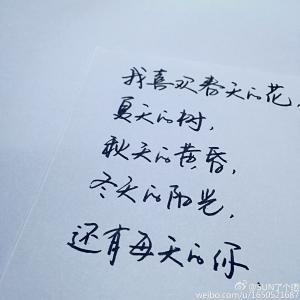 我喜欢春天的花,
夏天的树,
秋天的黄昏,
冬天的阳光,
还有每天的你.
@SUN了个债
weibo.com/u/1650521687